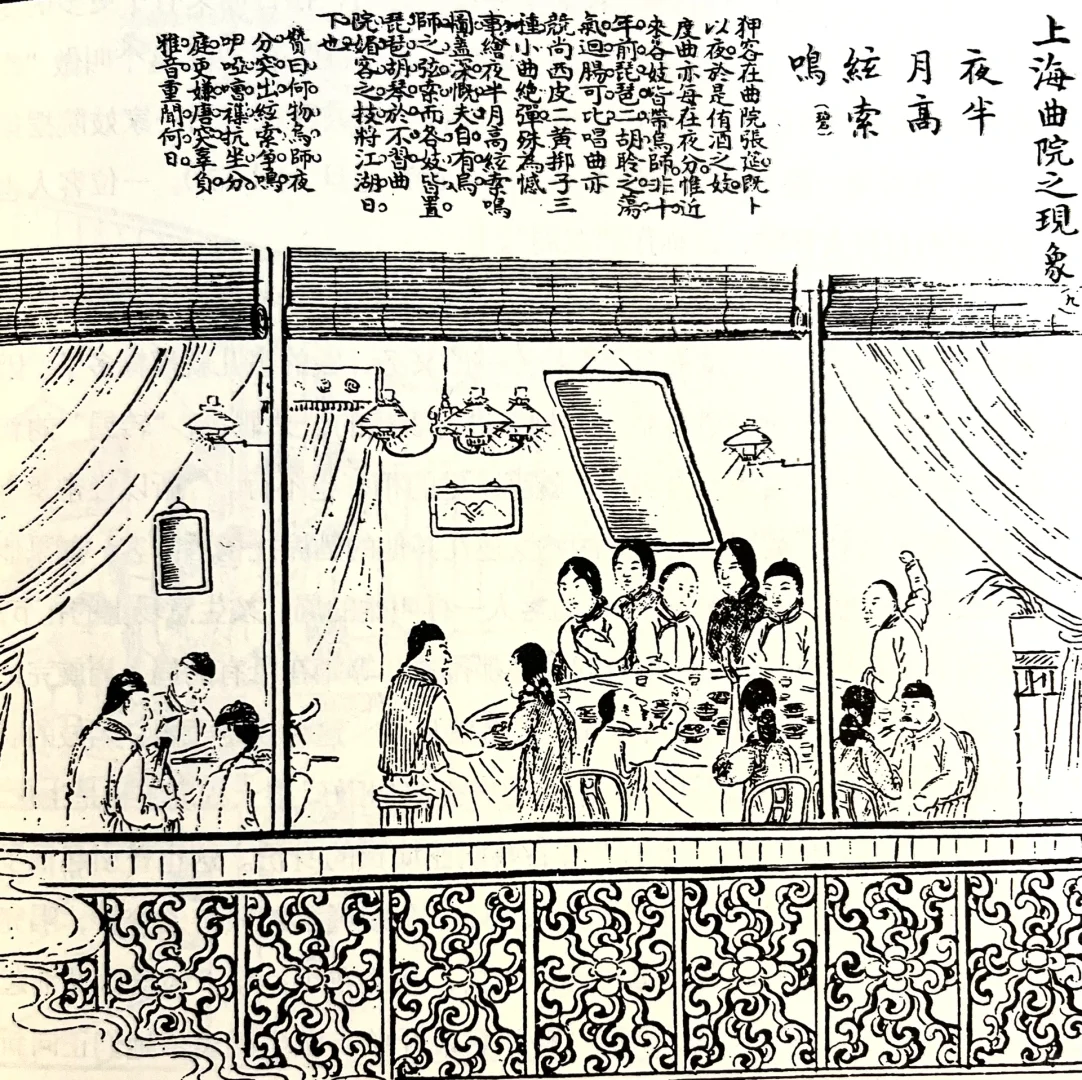 上海曲院之現象（九）
夜半
月高
絃索
鳴（碧）
狎客在曲院張筵旣卜
以夜於是侑酒之妓
度曲亦每在夜分惟近
來各妓皆帶烏師非十
年前琵琶二胡聆之蕩
氣迴腸可比唱曲亦
競尚西皮二黃梆子三
種小曲絶彈殊為憾
事繪夜半月高絃索鳴
圖蓋深慨夫自有烏
師之弦索而各妓皆置
琵琶胡琴於不習曲
院媚客之技將江湖日
下也
贊曰何物烏師夜
分突出絃索爭鳴
咿啞嘈雜抗坐分
庭更嫌唐突辜負
雅音重聞何日